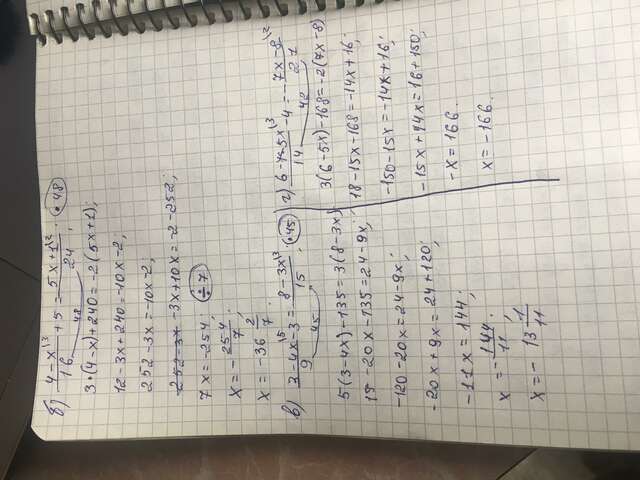 б) (4-x\3)/16 + 5 = -(5x+1\2)/24; (·48)
48
3·(4-x)+240=-2(5x+1);
12-3x+240=-10x-2;
252-3x=-10x-2;
-3x+10x=-2-252;
7x=-254; (÷7)
x=-254/7;
x=-36 2/7
в) (3-4x\5)/9 - 3 = (8-3x\3)/15; (·45)
45
5(3-4x)-135=3(8-3x)
15-20x-135=24-9x;
-120-20x=24-9x;
-20x+9x=24+120;
-11x=144;
x=-144/11;
x=-13 1/11
г) (6-5x\3)/14 - 4 = -(7x-8\2)/21
42
3(6-5x)-168=-2(7x-8)
18-15x-168=-14x+16;
-150-15x=-14x+16;
-15x+14x=16+150;
-x=166.
x=-166.